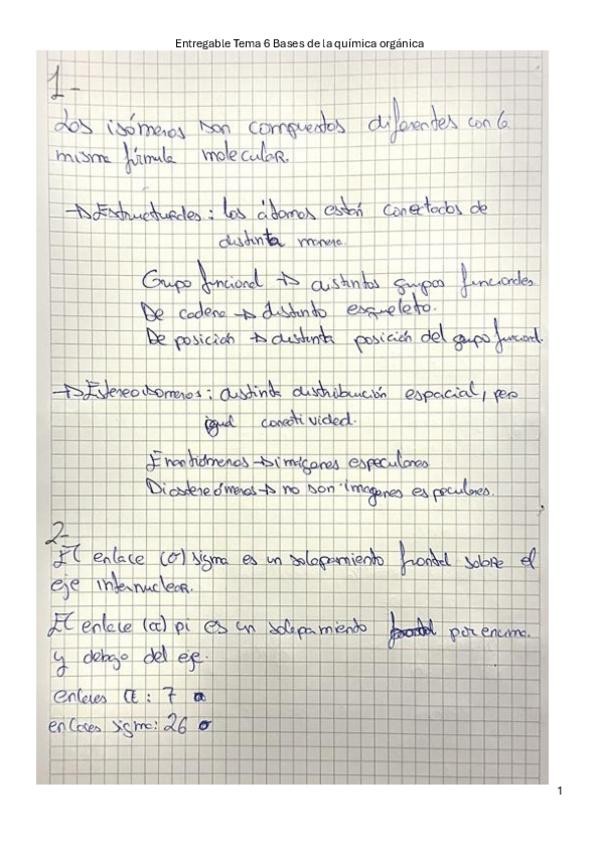 Entregable Tema 6 Bases de la química orgánica
1-
Los isómeros son compuestos diferentes con la
misma fórmula molecular.
→ Estructurales: los átomos están conectados de
distinta manera.
Grupo funcional → distintos grupos funcionales
De cadena → distinto esqueleto.
De posición → distinta posición del grupo funcional.
→ Estereoisómeros: distinta distribución espacial, pero
igual conectividad.
Enantiómeros → imágenes especulares
Diastereómeros → no son imagenes especulares.
2-
El enlace (σ) sigma es un solapamiento frontal sobre el
eje internuclear.
El enlace (π) pi es un solapamiento por encima
y debajo del eje.
enlaces π: 7
enlaces sigma: 26 σ
1